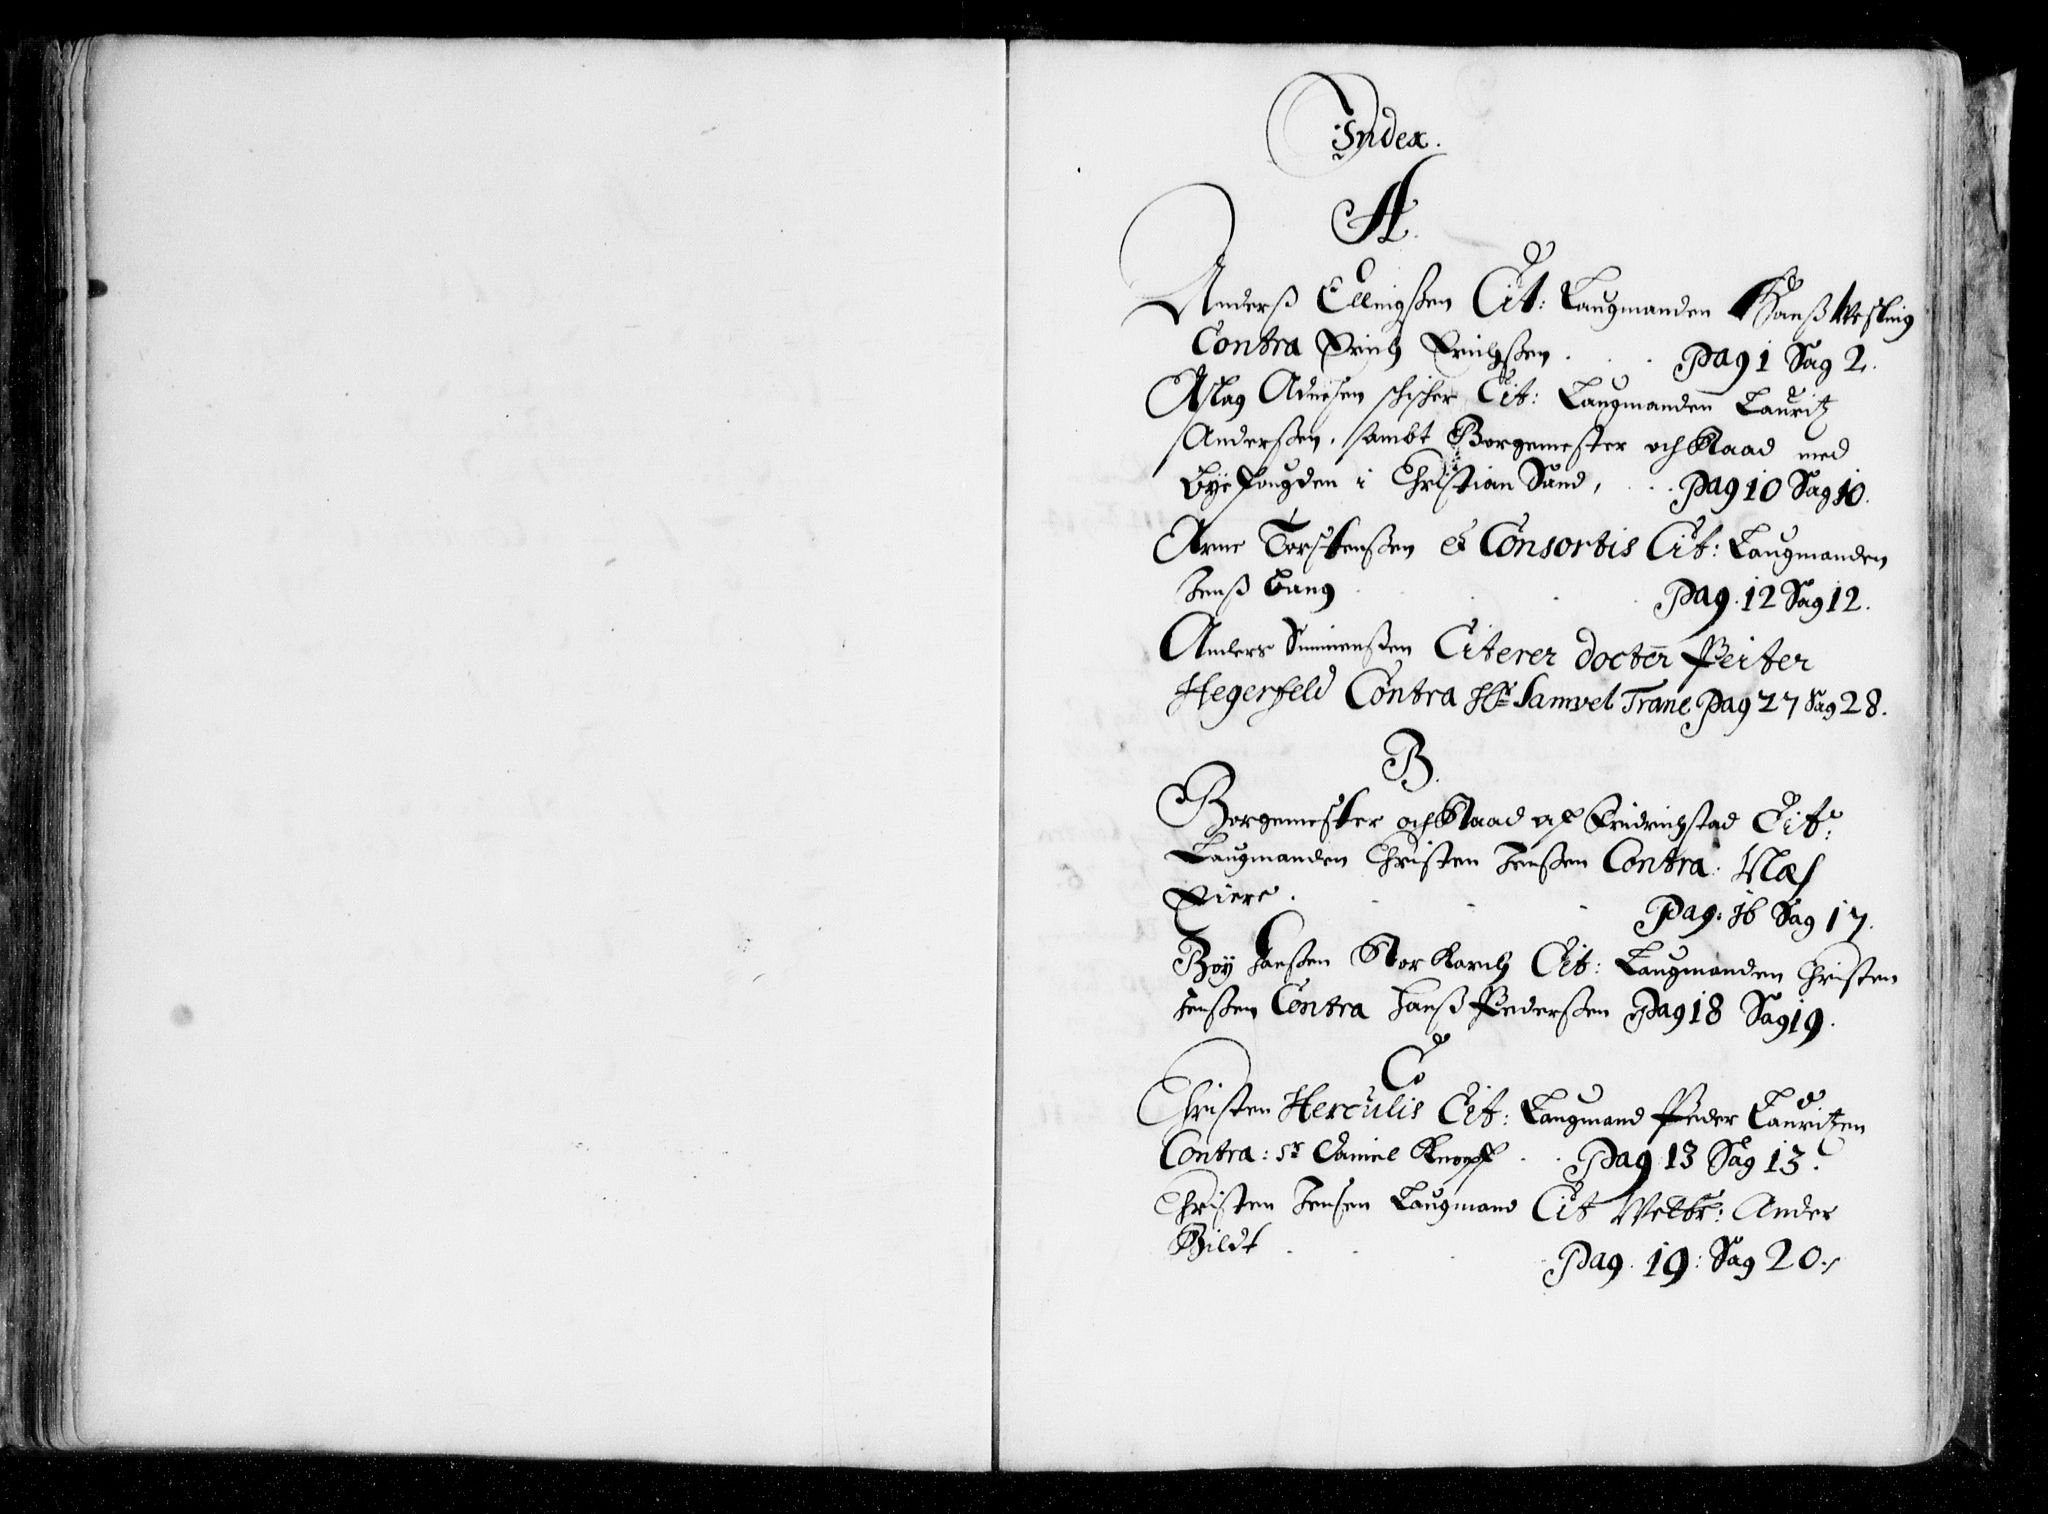 Index.
A.
Anderß Ellingßen Cit: Laugmanden Hanß Wesling
Contra Erich Erichßen . . . Pag 1 Sag 2.
Aslag schifher Cit: Laugmanden Lauritz
Anderßen, sambt Borgemester och Raad med
Byefougden i Christian Sand, . . Pag 10 Sag 10.
Arne Torstenßen et Consortis Cit: Laugmanden
Jenß Bang . . . Pag. 12 Sag 12.
Anders Simmenßen Citerer docter Peiter
Hegerfeld Contra Hr Samvel Trane Pag 27 Sag 28.
B.
Borgemester och Raad af Fridrichstad Cit:
Laugmanden Christen Jenßen Contra: Claf
Piere . . . . Pag: 16 Sag 17.
Boy Hanßen Cit: Laugmanden Christen
Jenßen Contra Hanß Pederßen Pag 18 Sag 19.
C.
Christen Herculis Cit: Laugmand Peder Lauritzen
Contra: Sr Daniel Knopf . . Pag 13 Sag 13.
Christen Jensen Laugmand Cit Welbr: Ander
Bildt . . . Pag. 19: Sag 20.